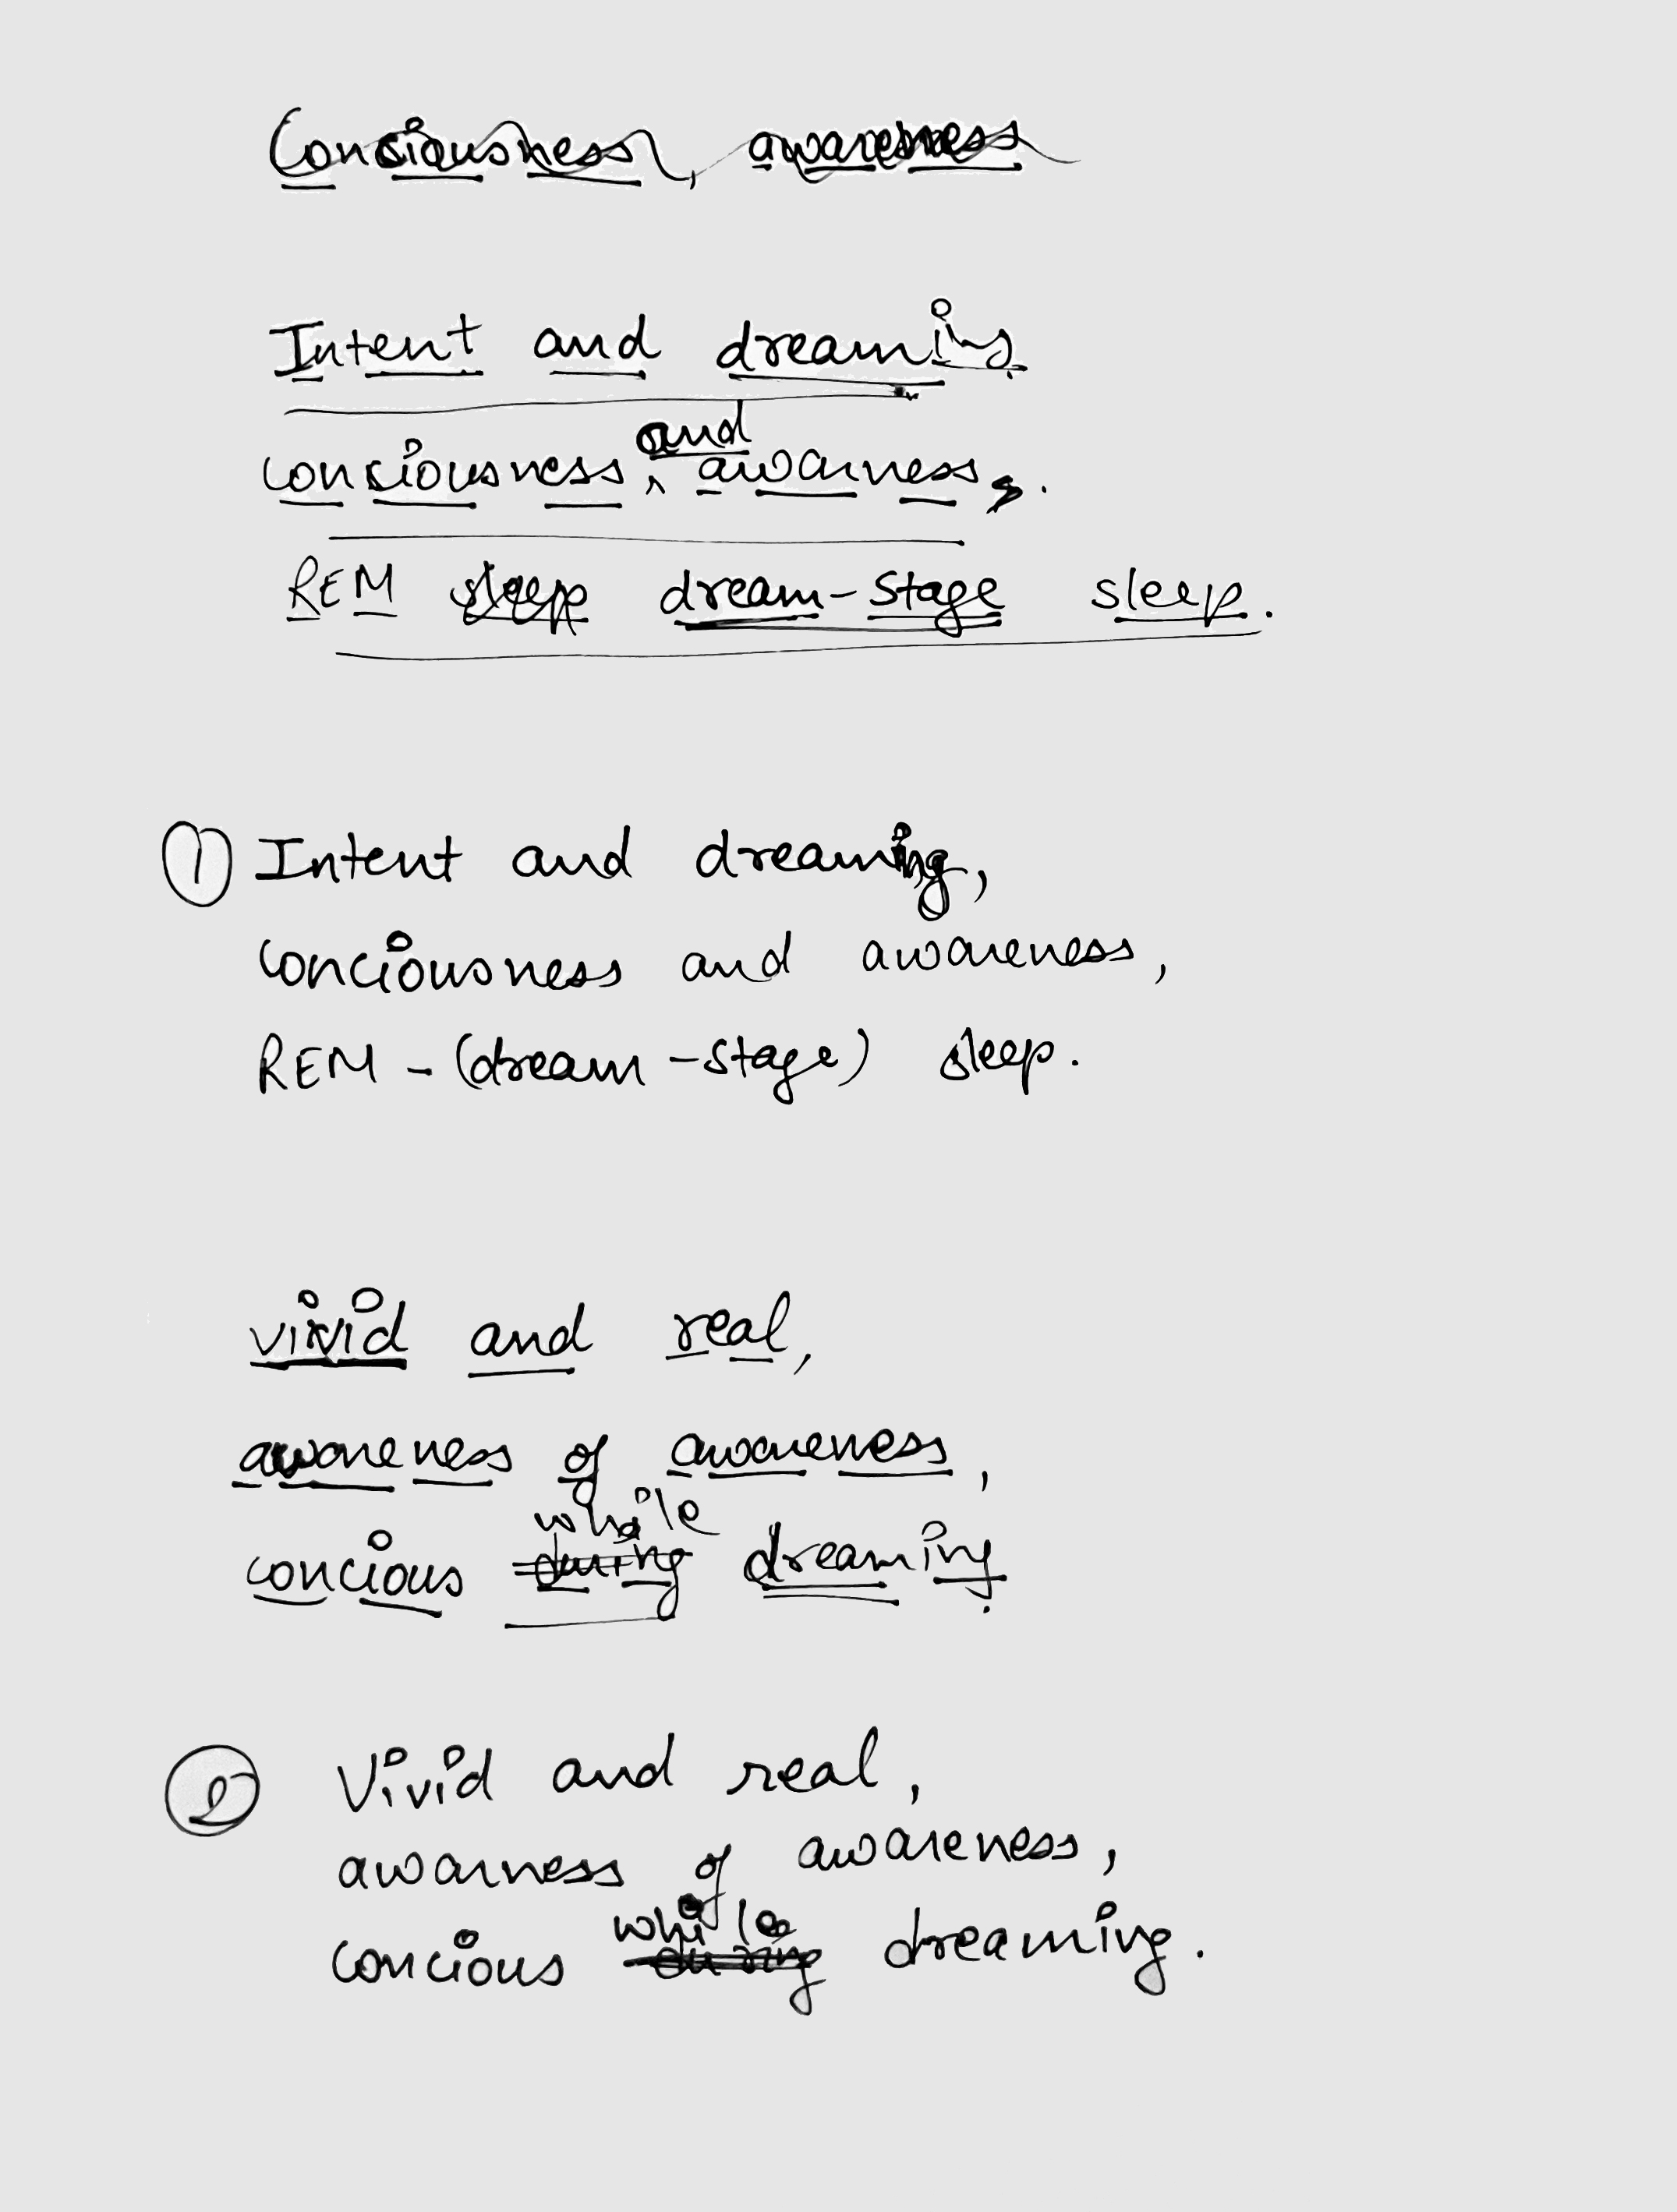 Consiousness, awareness
Intent and dreaming.
consiousness and awarness.
REM sleep dream-stage sleep.
1 Intent and dreaming,
conciousness and awareness,
REM - (dream-stage) sleep.
vivid and real,
awareness of awareness,
concious during while dreaming.
2 Vivid and real,
awarness of awareness,
concious during while dreaming.